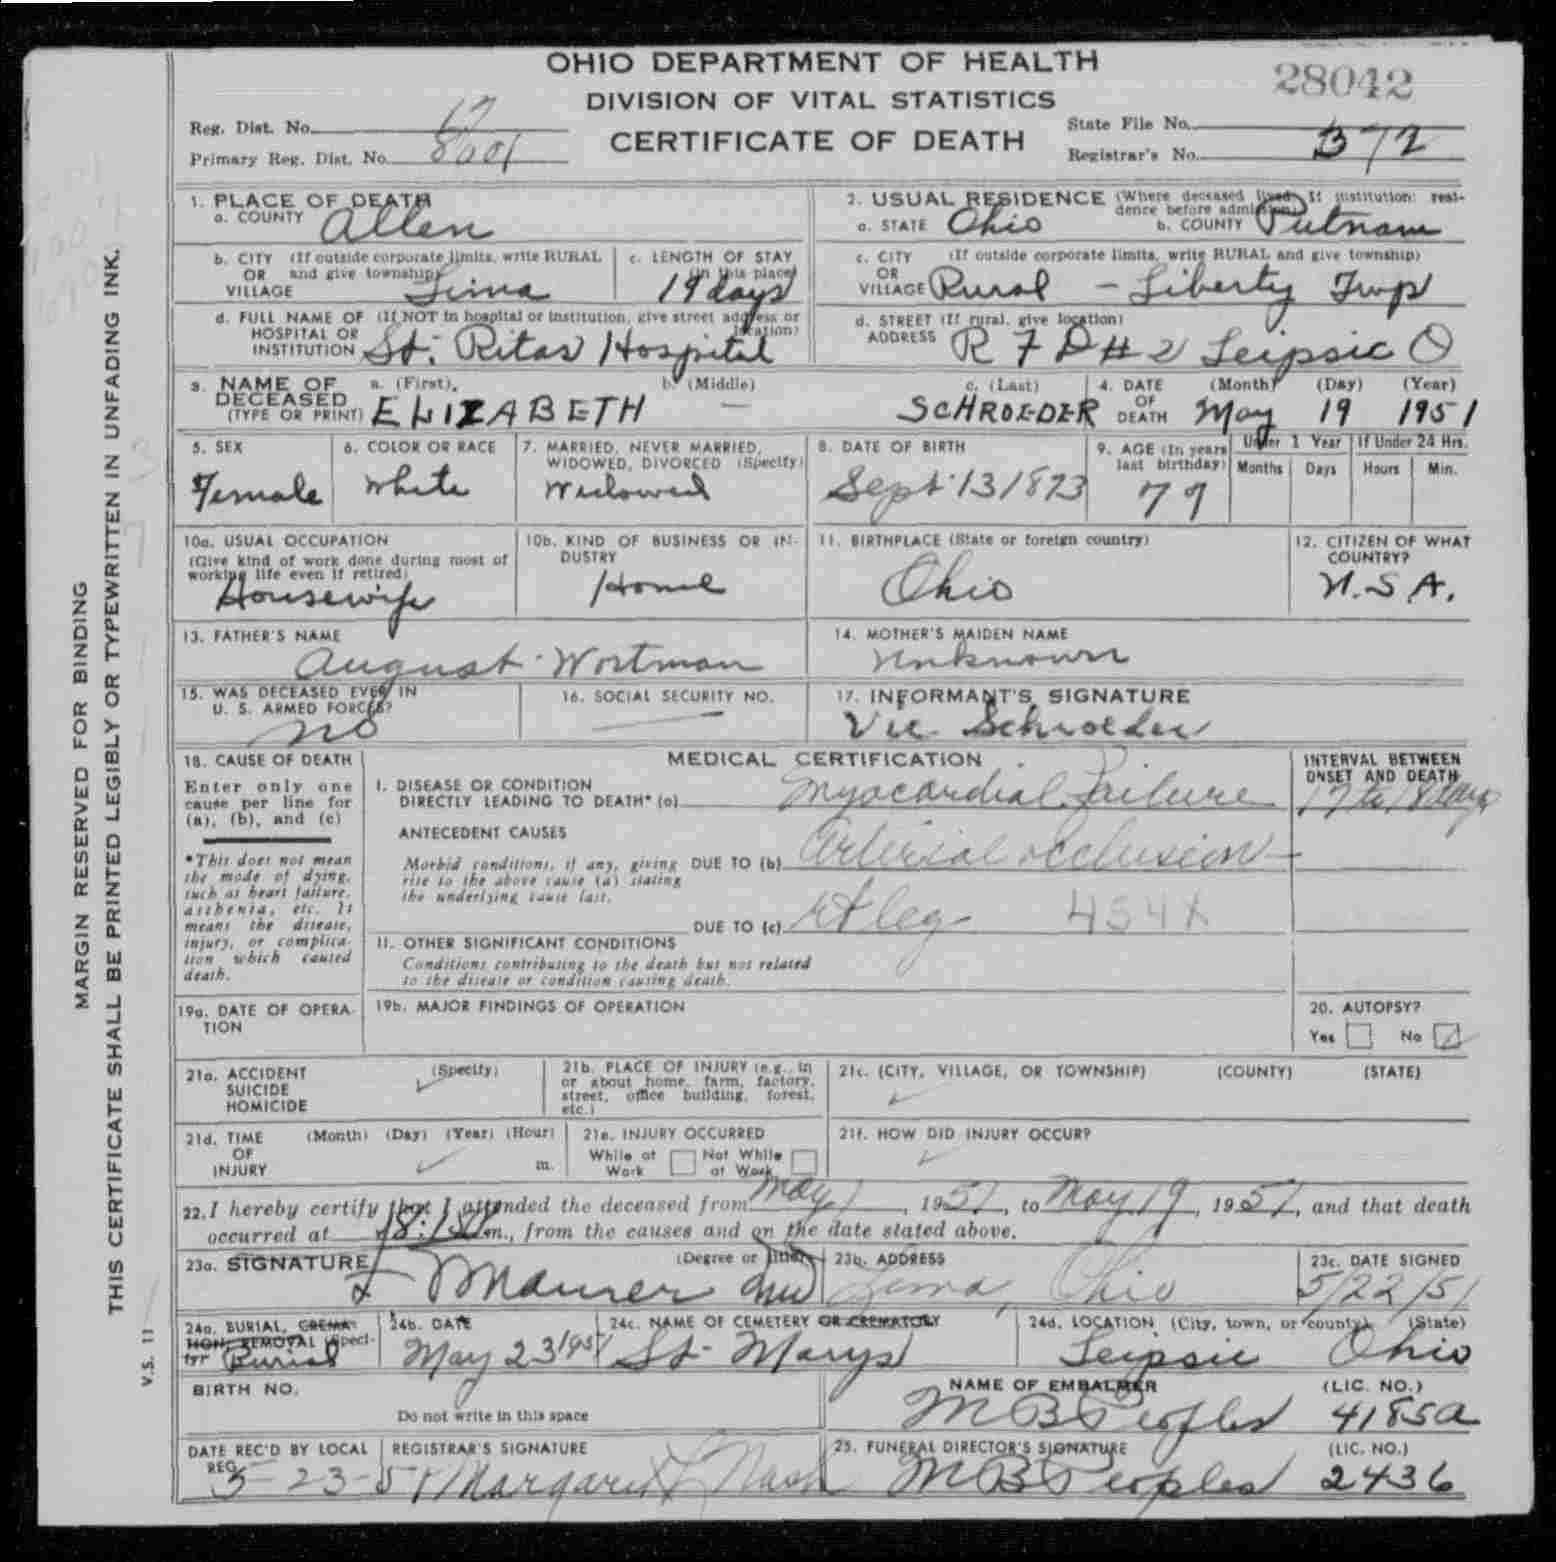 OHIO DEPARTMENT OF HEALTH
28042
DIVISION OF VITAL STATISTICS
CERTIFICATE OF DEATH
Reg. Dist. No. 17
Primary Reg. Dist. No. 8001
State File No.
Registrar's No. 372
MARGIN RESERVED FOR BINDING
THIS CERTIFICATE SHALL BE PRINTED LEGIBLY OR TYPEWRITTEN IN UNFADING INK.
V.S. 11
1. PLACE OF DEATH
a. COUNTY Allen
2. USUAL RESIDENCE (Where deceased lived. If institution: resi-
dence before admission)
a. STATE Ohio b. COUNTY Putnam
b. CITY (If outside corporate limits, write RURAL
OR and give township)
VILLAGE Lima
c. LENGTH OF STAY
(in this place)
19 days
c. CITY (If outside corporate limits, write RURAL and give township)
OR
VILLAGE Rural - Liberty Twp
d. FULL NAME OF (If NOT in hospital or institution, give street address or
location)
HOSPITAL OR
INSTITUTION St. Ritas Hospital
d. STREET (If rural, give location)
ADDRESS R F D # 2 Leipsic O
3. NAME OF
DECEASED
(TYPE OR PRINT)
a. (First) b. (Middle) c. (Last)
ELIZABETH — SCHROEDER
4. DATE
OF
DEATH
(Month) (Day) (Year)
May 19 1951
5. SEX
Female
6. COLOR OR RACE
White
7. MARRIED, NEVER MARRIED,
WIDOWED, DIVORCED (Specify)
Widowed
8. DATE OF BIRTH
Sept 13 1873
9. AGE (In years
last birthday)
77
Under 1 Year
Months Days
If Under 24 Hrs.
Hours Min.
10a. USUAL OCCUPATION
(Give kind of work done during most of
working life even if retired)
Housewife
10b. KIND OF BUSINESS OR IN-
DUSTRY
Home
11. BIRTHPLACE (State or foreign country)
Ohio
12. CITIZEN OF WHAT
COUNTRY?
U.S.A.
13. FATHER'S NAME
August Wortman
14. MOTHER'S MAIDEN NAME
Unknown
15. WAS DECEASED EVER IN
U. S. ARMED FORCES?
no
16. SOCIAL SECURITY NO.
17. INFORMANT'S SIGNATURE
Vic Schroeder
18. CAUSE OF DEATH
Enter only one
cause per line for
(a), (b), and (c)
*This does not mean
the mode of dying,
such as heart failure,
asthenia, etc. It
means the disease,
injury, or complica-
tion which caused
death.
MEDICAL CERTIFICATION
I. DISEASE OR CONDITION
DIRECTLY LEADING TO DEATH* (a) Myocardial Failure
INTERVAL BETWEEN
ONSET AND DEATH
17 to 18 days
ANTECEDENT CAUSES
Morbid conditions, if any, giving
rise to the above cause (a) stating
the underlying cause last.
DUE TO (b) Arterial occlusion
DUE TO (c) Rt leg 454X
II. OTHER SIGNIFICANT CONDITIONS
Conditions contributing to the death but not related
to the disease or condition causing death.
19a. DATE OF OPERA-
TION
19b. MAJOR FINDINGS OF OPERATION
20. AUTOPSY?
Yes No
21a. ACCIDENT (Specify)
SUICIDE
HOMICIDE
21b. PLACE OF INJURY (e.g., in
or about home, farm, factory,
street, office building, forest,
etc.)
21c. (CITY, VILLAGE, OR TOWNSHIP) (COUNTY) (STATE)
21d. TIME (Month) (Day) (Year) (Hour)
OF
INJURY m.
21e. INJURY OCCURRED
While at Work Not While at Work
21f. HOW DID INJURY OCCUR?
22. I hereby certify that I attended the deceased from May 1, 1951, to May 19, 1951, and that death
occurred at m., from the causes and on the date stated above.
23a. SIGNATURE (Degree or title)
Maurer MD
23b. ADDRESS
Lima, Ohio
23c. DATE SIGNED
5/22/51
24a. BURIAL, CREMA-
TION, REMOVAL (Speci-
fy) Burial
24b. DATE
May 23 1951
24c. NAME OF CEMETERY OR CREMATORY
St. Marys
24d. LOCATION (City, town, or county) (State)
Leipsic Ohio
BIRTH NO.
Do not write in this space
NAME OF EMBALMER (LIC. NO.)
M B Peoples 4185A
DATE REC'D BY LOCAL
REG.
5-23-51
REGISTRAR'S SIGNATURE
Margaret L Nash
25. FUNERAL DIRECTOR'S SIGNATURE (LIC. NO.)
M B Peoples 2436